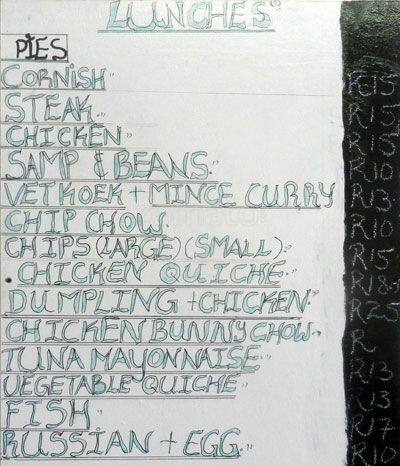 LUNCHES
PIES
CORNISH R15
STEAK R15
CHICKEN R15
SAMP & BEANS R10
VETKOEK + MINCE CURRY R13
CHIP CHOW R10
CHIPS (LARGE) (SMALL) R15
CHICKEN QUICHE R18
DUMPLING + CHICKEN R25
CHICKEN BUNNY CHOW R
TUNA MAYONNAISE R13
VEGETABLE QUICHE R13
FISH R17
RUSSIAN + EGG R10